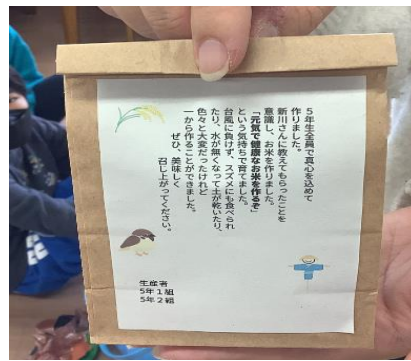 5年生全員で真心を込めて
作りました。
新川さんに教えてもらったことを
意識し、お米を作りました。
「元気で健康なお米を作るぞ」
という気持ちで育てました。
台風に負けず、スズメにも食べられ
たり、水が無くなって土が乾いたり、
色々と大変だったけれど
一から作ることができました。
ぜひ、美味しく
召し上がってください。
生産者
5年1組
5年2組